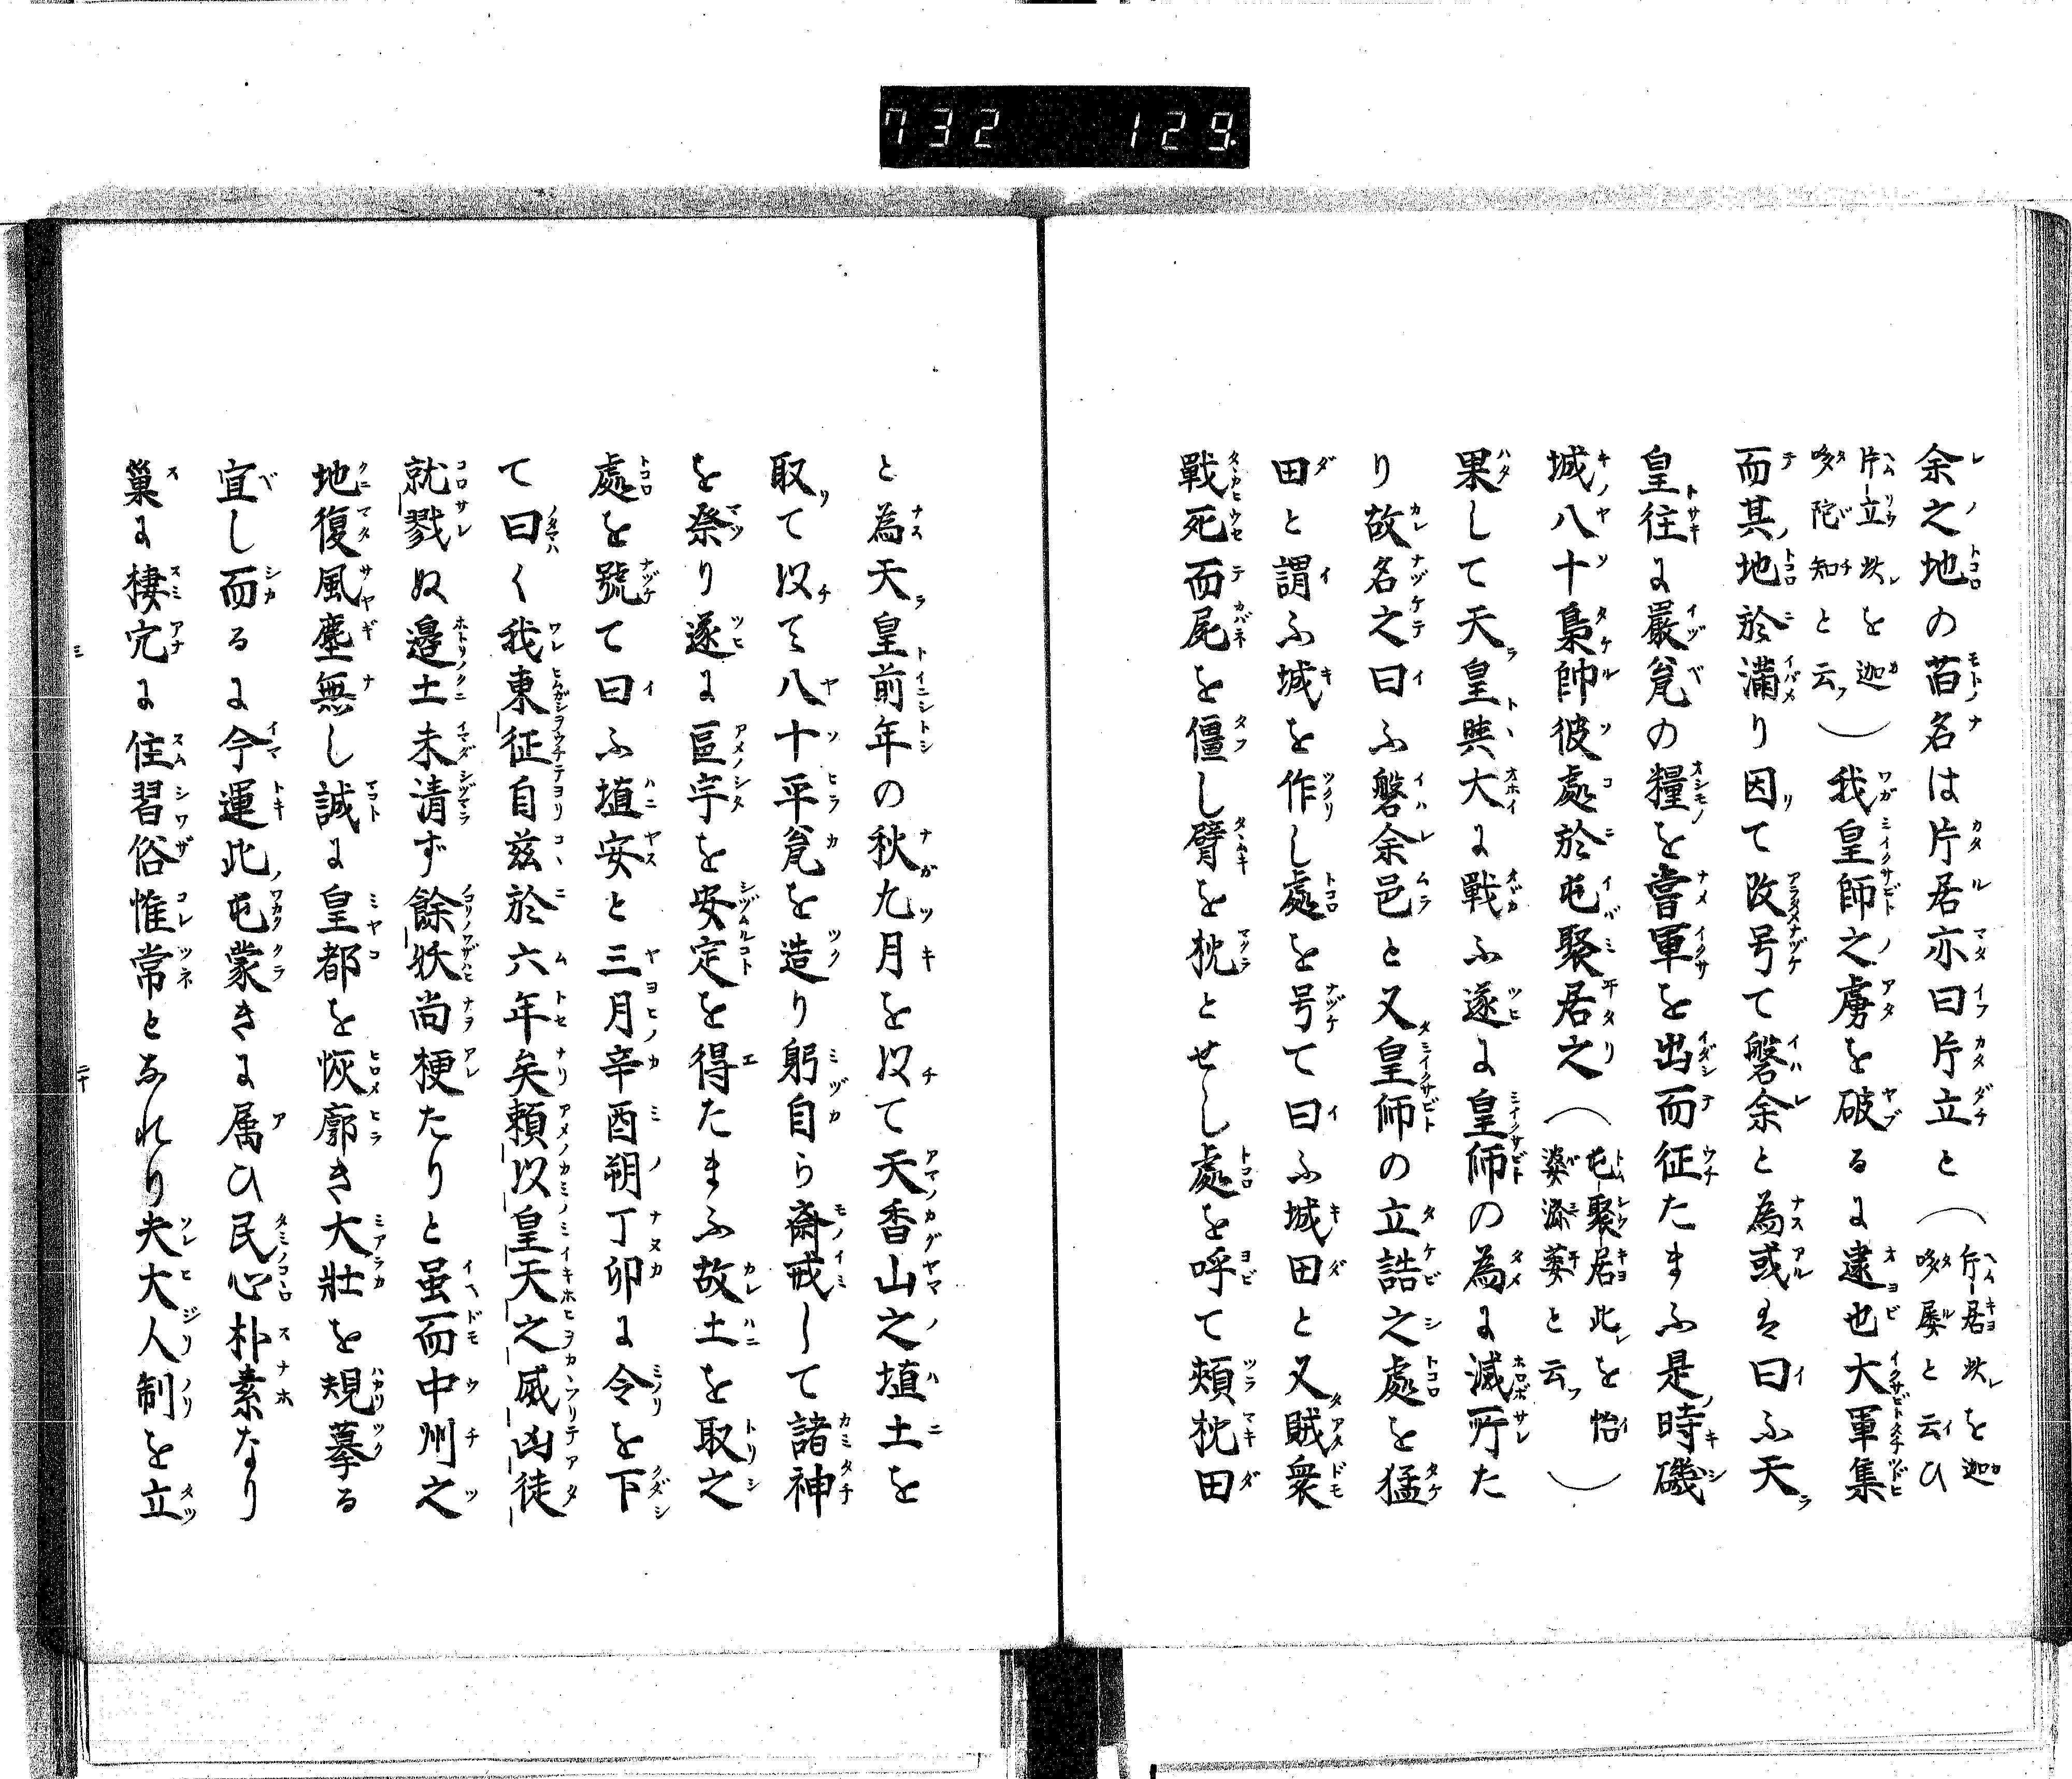 732 129
余之地の旧名は片居亦曰片立と（片居此を迦哆屡と云ひ
片立此を迦哆陀知と云）我皇師之虜を破るに逮也大軍集
而其地於満り因て改号て磐余と為或は曰ふ天
皇往に厳瓮の糧を嘗軍を出而征たまふ是時磯
城八十梟帥彼處於屯聚居之（屯聚居此を怡婆瀰萎と云）
果して天皇與大に戰ふ遂に皇師の為に滅所た
り故名之曰ふ磐余邑と又皇師の立誥之處を猛
田と謂ふ城を作し處を号て曰ふ城田と又賊衆
戰死而屍を僵し臂を枕とせし處を呼て頬枕田
と為天皇前年の秋九月を以て天香山之埴土を
取て以て八十平瓮を造り躬自ら斎戒して諸神
を祭り遂に區宇を安定を得たまふ故土を取之
處を號て曰ふ埴安と三月辛酉朔丁卯に令を下
て曰く我東征自茲於六年矣頼以皇天之威凶徒
就戮ぬ邉土未清ず餘妖尚梗たりと虽而中州之
地復風塵無し誠に皇都を恢廓き大壮を規摹る
宜し而るに今運此屯蒙きに属ひ民心朴素なり
巣に棲穴に住習俗惟常となれり夫大人制を立